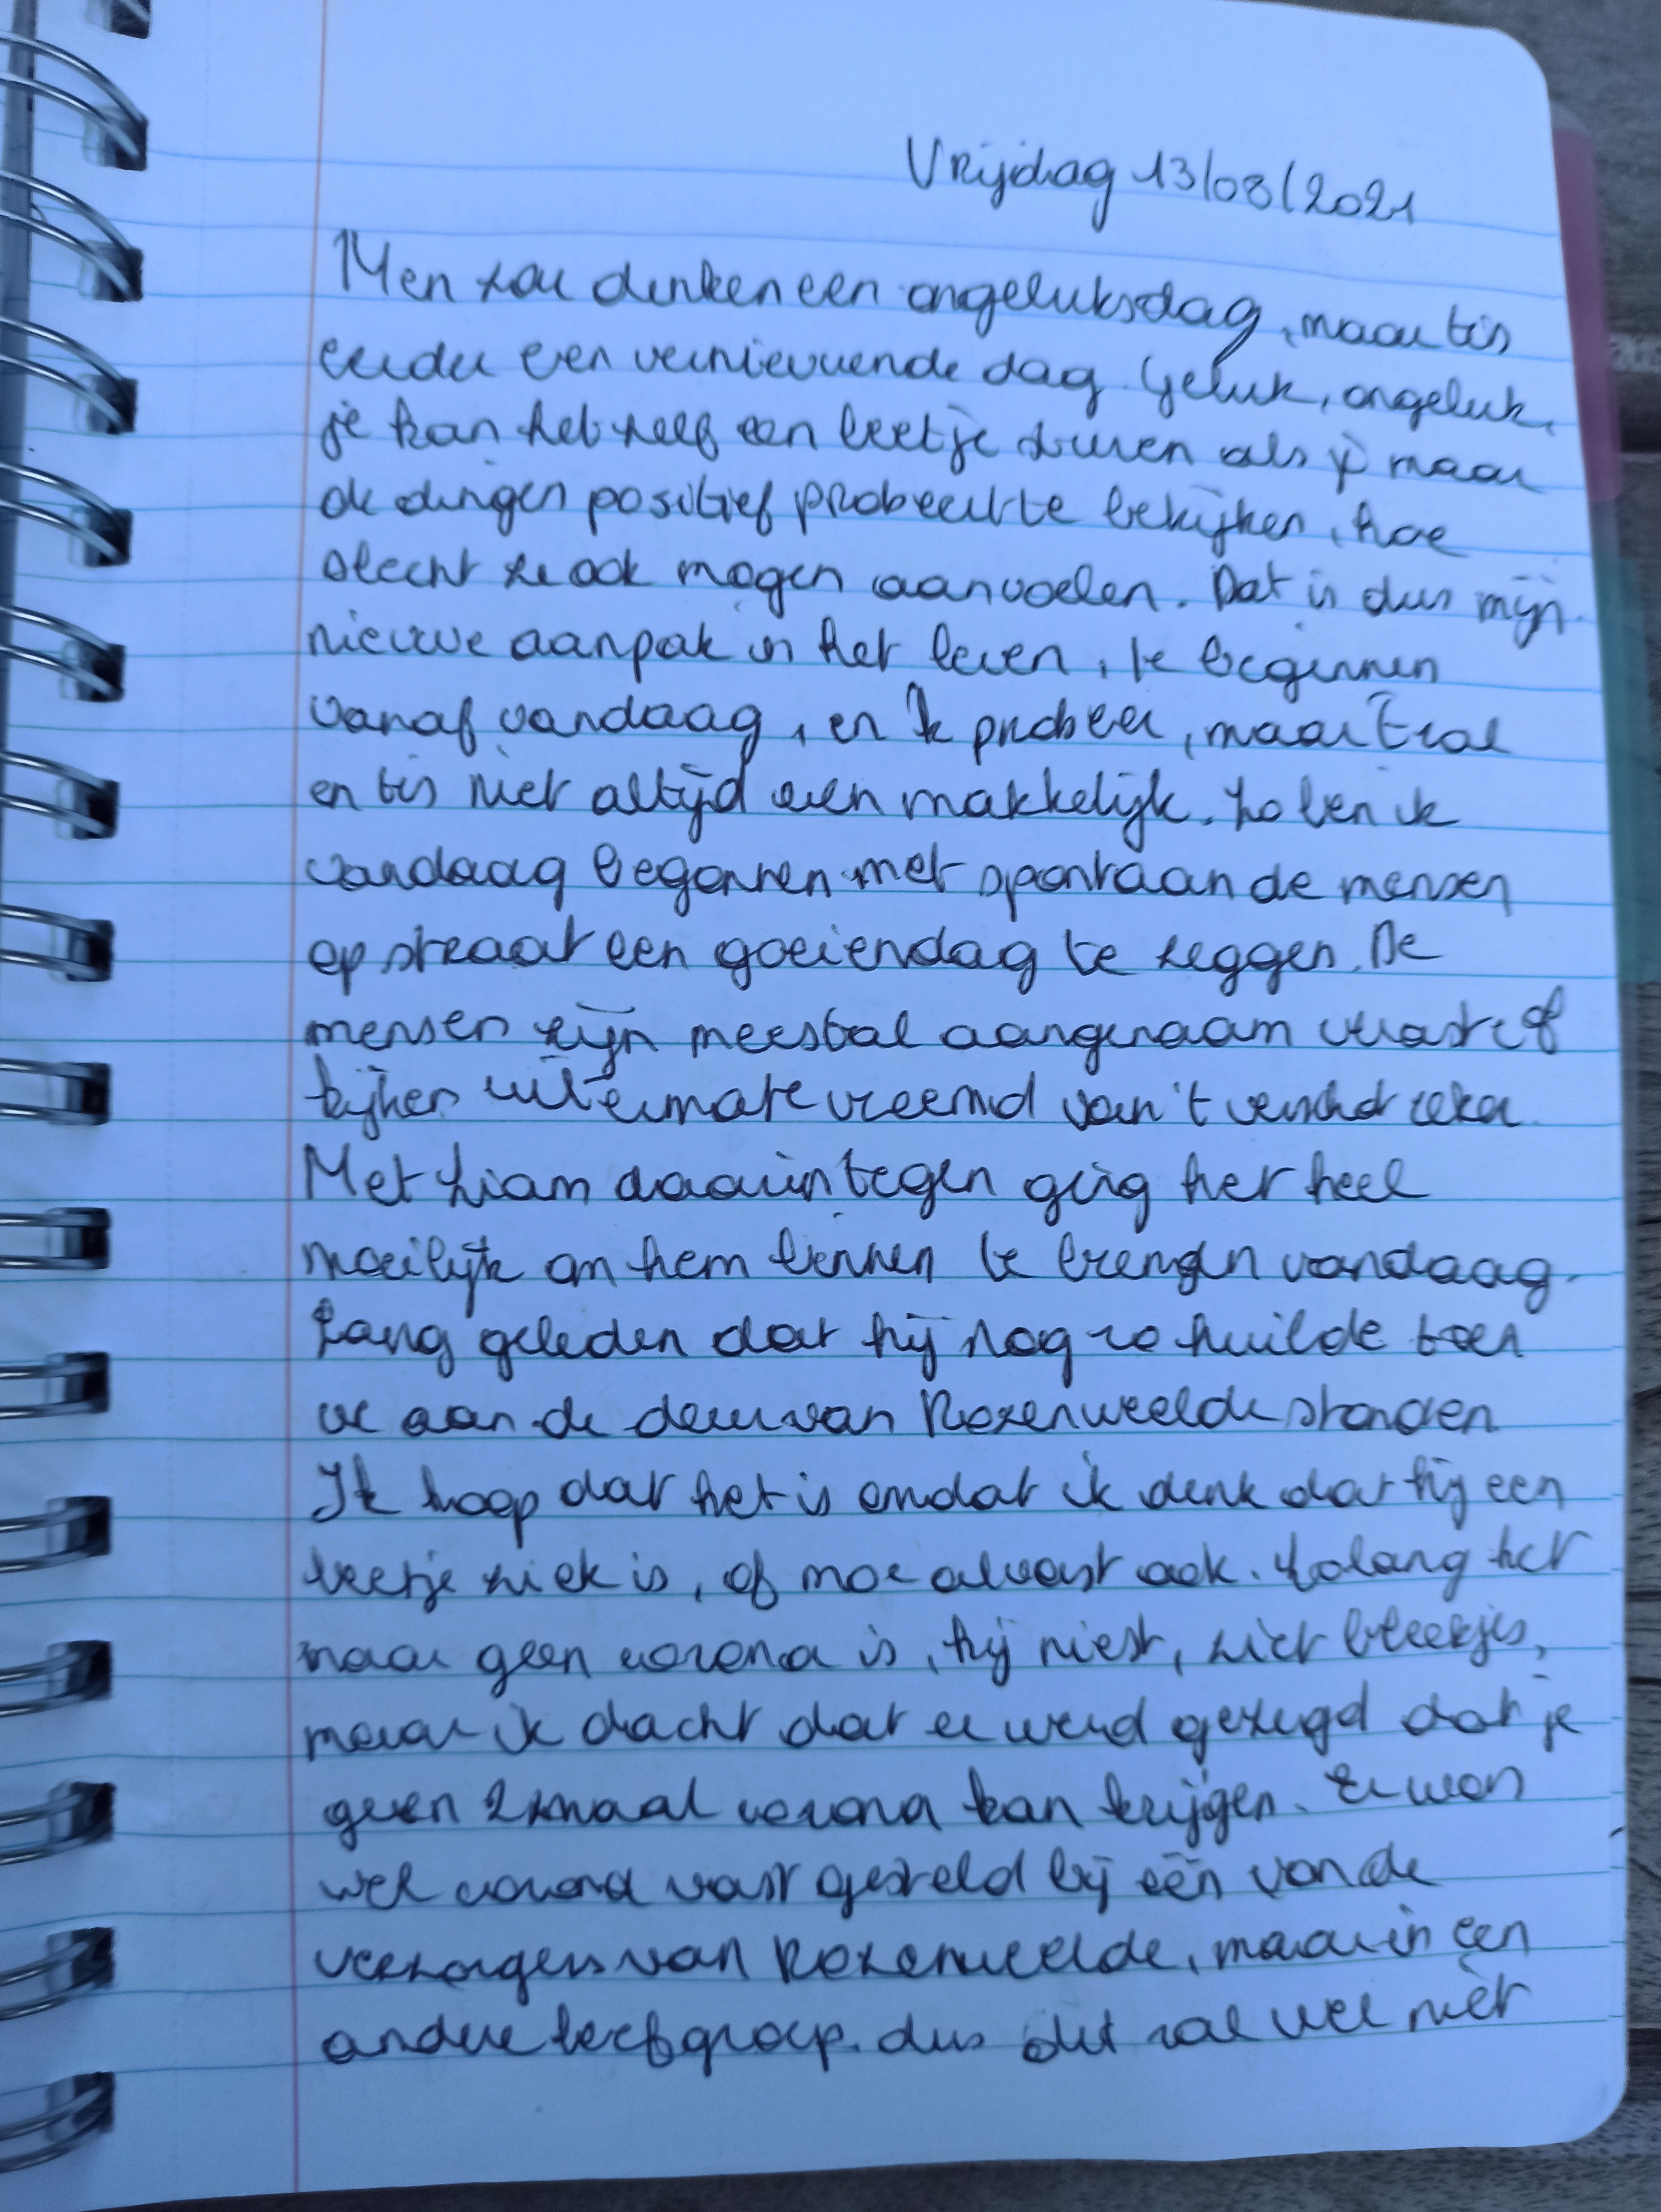 Vrijdag 13/08/2021
Men zou denken een ongeluksdag, maar tis
eerder een vernieuwende dag. Geluk, ongeluk,
je kan het zelf een beetje sturen als je maar
de dingen positief probeert te bekijken, hoe
slecht ze ook mogen aanvoelen. Dat is dus mijn
nieuwe aanpak in het leven, te beginnen
vanaf vandaag, en ik probeer, maar 't zal
en tis niet altijd even makkelijk. Zo ben ik
vandaag begonnen met spontaan de mensen
op straat een goeiendag te zeggen. De
mensen zijn meestal aangenaam verrast of
kijken uitermate vreemd van 't verschot zeker.
Met Liam daarintegen ging het heel
moeilijk om hem binnen te brengen vandaag.
Lang geleden dat hij nog zo huilde toen
we aan de deur van Rozenweelde stonden.
Ik hoop dat het is omdat ik denk dat hij een
beetje ziek is, of moe alvast ook. Zolang het
maar geen corona is, hij niest, ziet bleekjes,
maar ik dacht dat er werd gezegd dat je
geen 2 maal corona kan krijgen. Er was
wel corona vast gesteld bij één van de
verzorgers van Rozenweelde, maar in een
andere leefgroep. dus dit zal wel niet